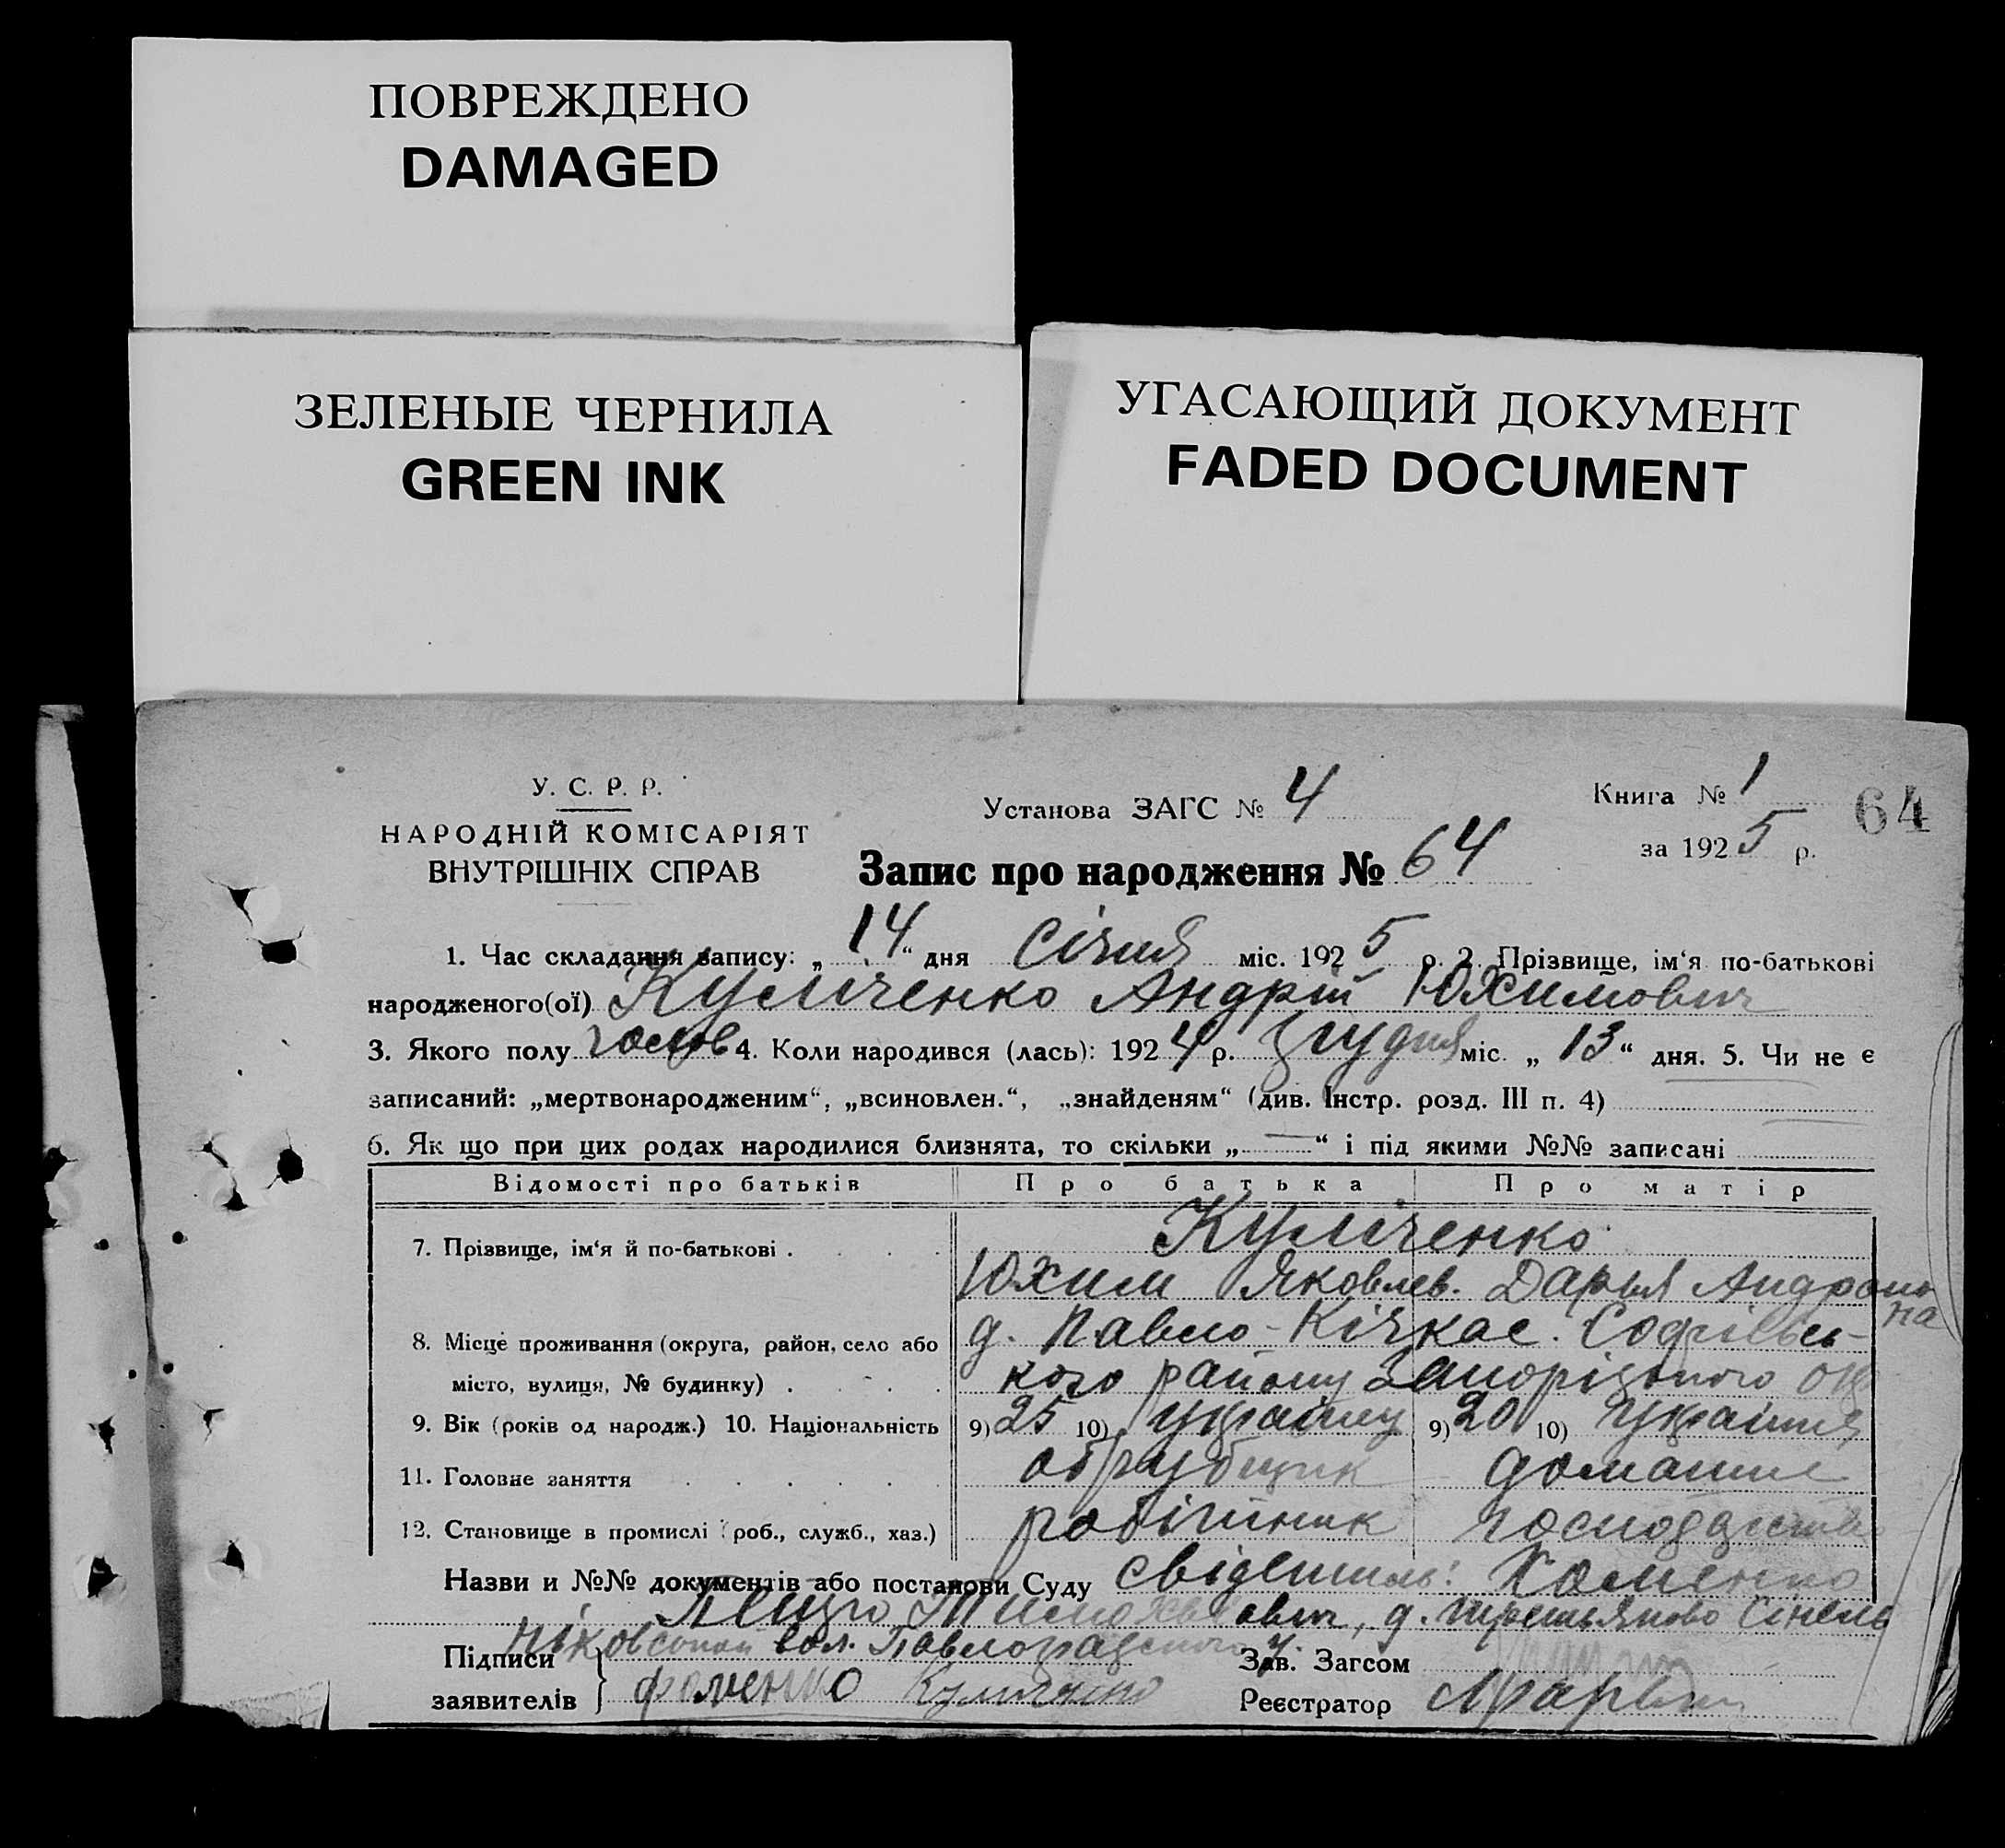 ПОВРЕЖДЕНО
DAMAGED
ЗЕЛЕНЫЕ ЧЕРНИЛА
GREEN INK
УГАСАЮЩИЙ ДОКУМЕНТ
FADED DOCUMENT
У. С. Р. Р.
НАРОДНІЙ КОМІСАРІЯТ
ВНУТРІШНІХ СПРАВ
Установа ЗАГС № 4
Книга № 1
за 1925 р.
64
Запис про народження № 64
1. Час складання запису: „14“ дня Січня міс. 1925 р. 2. Прізвище, ім‘я по-батькові
народженого(ої) Куліченко Андрій Юхимович
3. Якого полу 4. Коли народився (лась): 1924 р. грудня міс. „13“ дня. 5. Чи не є
записаний: „мертвонародженим“, „всиновлен.“, „знайденям“ (див. Інстр. розд. III п. 4)
6. Як що при цих родах народилися близнята, то скільки „—“ і під якими №№ записані
Відомості про батьків Про батька Про матір
7. Прізвище, ім‘я й по-батькові . Куліченко
Юхим Яковлев. Дарья
8. Місце проживання (округа, район, село або д. Павло-Кічкас. Софіївсь-
місто, вулиця, № будинку) . кого району Запорізького
9. Вік (років од народж.) 10. Національність 9) 25 10) 9) 20 10)
11. Головне заняття обрубщик домашнє
12. Становище в промислі (роб., служб., хаз.) робітник господарство
Назви и №№ документів або постанови Суду
д.
вол. Павлоградского у.
Підписи
заявителів
Зав. Загсом
Реєстратор